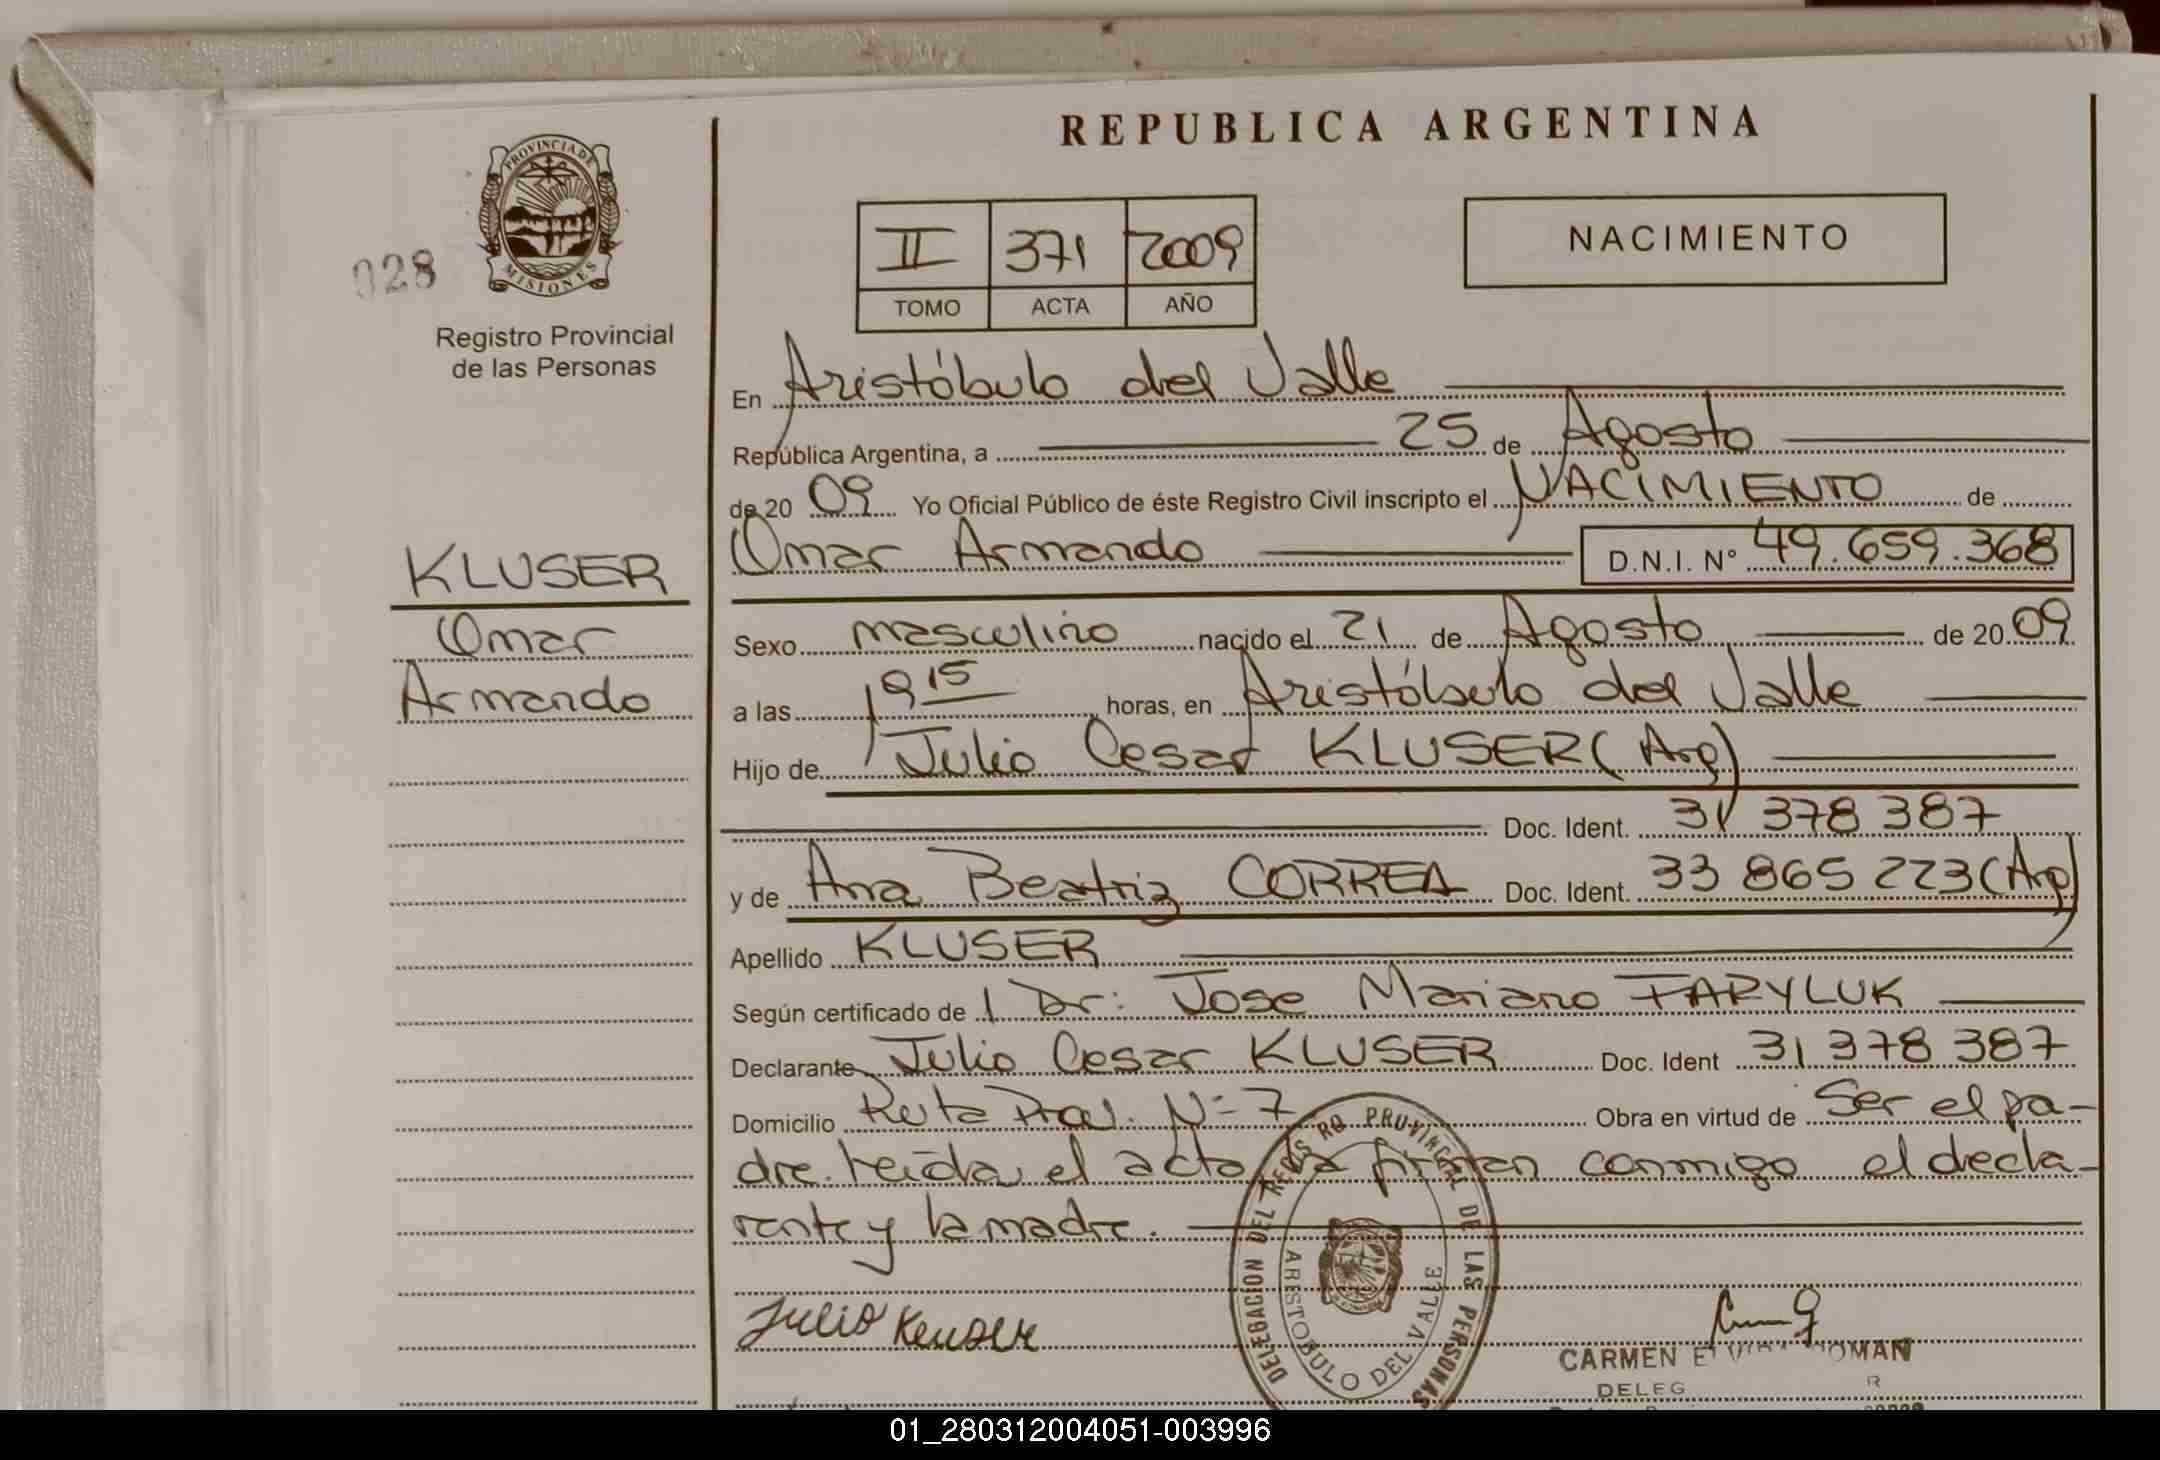 REPUBLICA ARGENTINA
PROVINCIA DE
MISIONES
028
Registro Provincial
de las Personas
II 371 2009
TOMO ACTA AÑO
NACIMIENTO
En Aristóbulo del Valle
República Argentina, a 25 de Agosto
de 20 09 Yo Oficial Público de éste Registro Civil inscripto el NACIMIENTO de
Omar Armando D.N.I. N° 49.659.368
KLUSER
Omar
Armando
Sexo masculino nacido el 21 de Agosto de 20 09
a las 19 15 horas, en Aristóbulo del Valle
Hijo de Julio Cesar KLUSER (Arg)
Doc. Ident. 31 378 387
y de Ana Beatriz CORREA Doc. Ident. 33 865 223 (Arg)
Apellido KLUSER
Según certificado de 1 Dr: Jose Mariano FARYLUK
Declarante Julio Cesar KLUSER Doc. Ident 31 378 387
Domicilio Ruta Pcial. N= 7 Obra en virtud de Ser el pa-
dre. leída el acta la firman conmigo el decla-
rante y la madre.
DELEGACION DEL REGIS RO PROVINCIAL DE LAS PERSONAS
ARISTOBULO DEL VALLE
Julio Kluser
CARMEN
DELEG
01_280312004051-003996